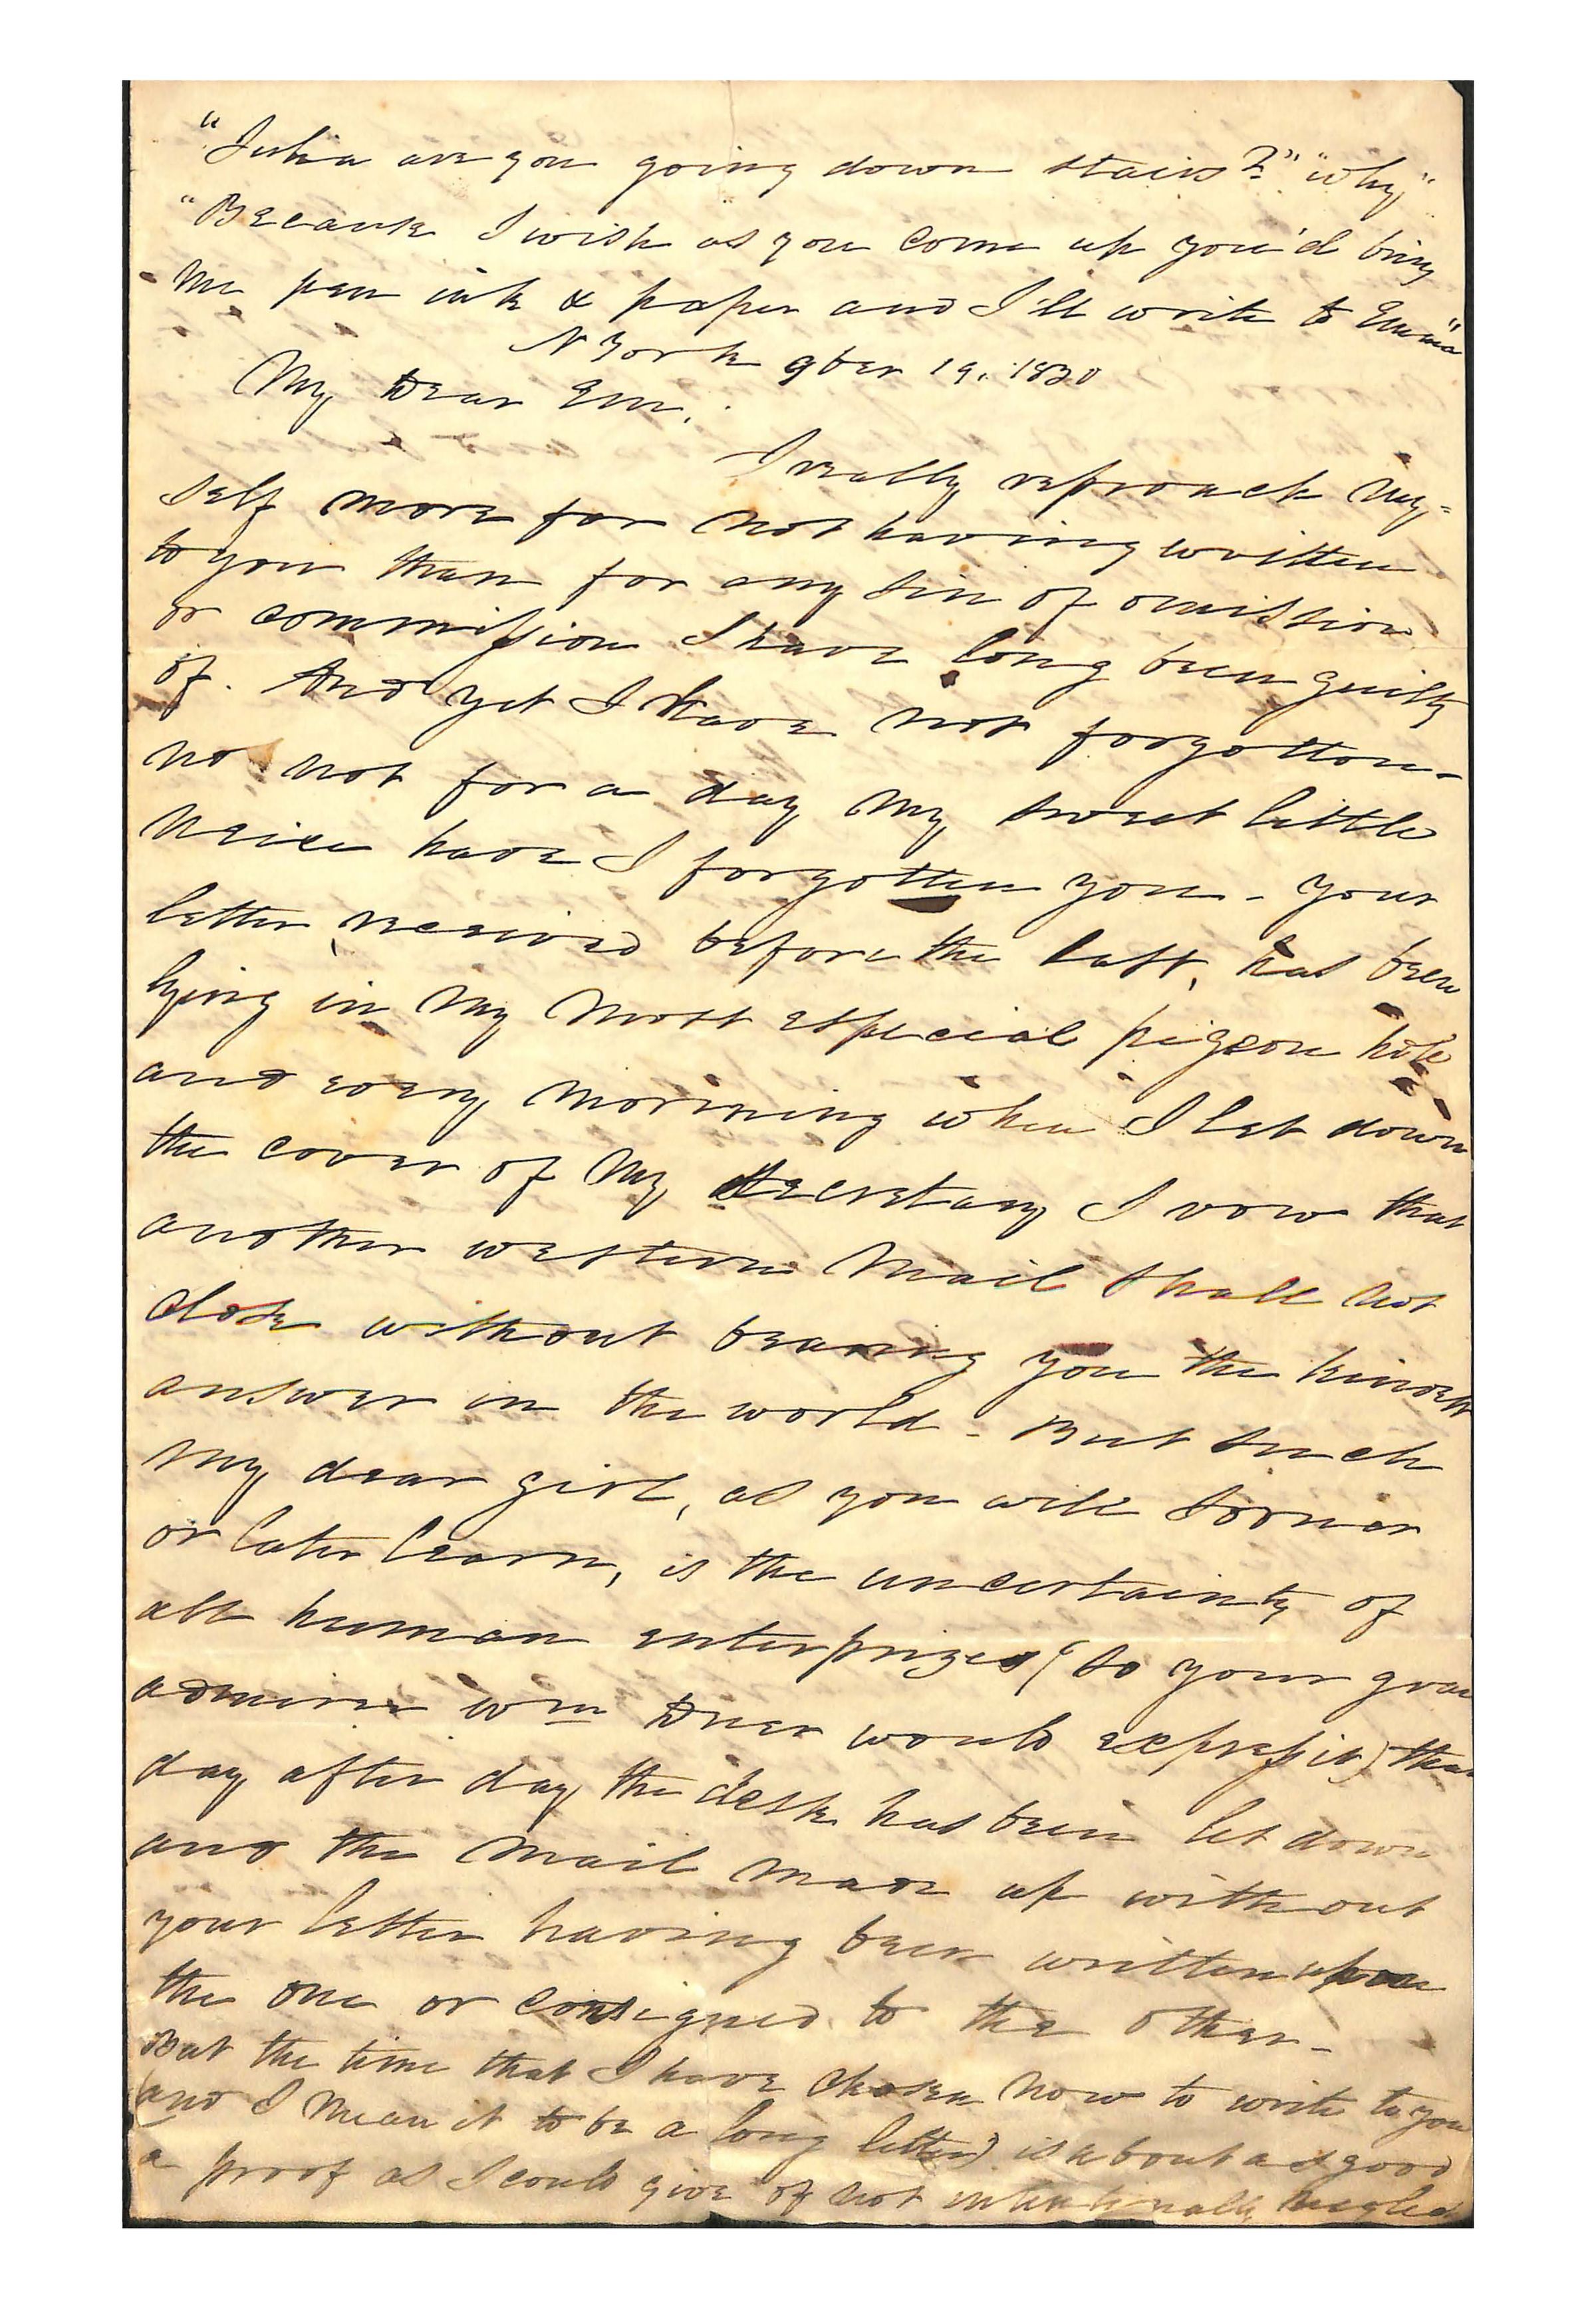 "Julia are you going down stairs?" "why"
"Because I wish as you come up you'd bring
me pen ink & paper and I'll write to Emma"
N York 9ber 19. 1830
My Dear Em.
I really reproach my=
self more for not having written
to you than for any sin of omission
or commission I have long been guilty
of. And yet I have not forgotten -
no not for a day my sweet little
neice have I forgotten you - your
letter received before the last, has been
lying in my most especial pigeon hole
and every morning when I let down
the cover of my secretary I vow that
another western mail shall not
close without bearing you the kindest
answer in the world - But such
my dear girl, as you will sooner
or later learn, is the uncertainty of
all human enterprizes (so your
admirer Wm Duer would express it) that
day after day the desk has been let down
and the mail made up without
your letter having been written upon
the one or consigned to the other -
But the time that I have chosen now to write to you
(and I mean it to be a long letter) is about as good
a proof as I could give of not intentionally neglect